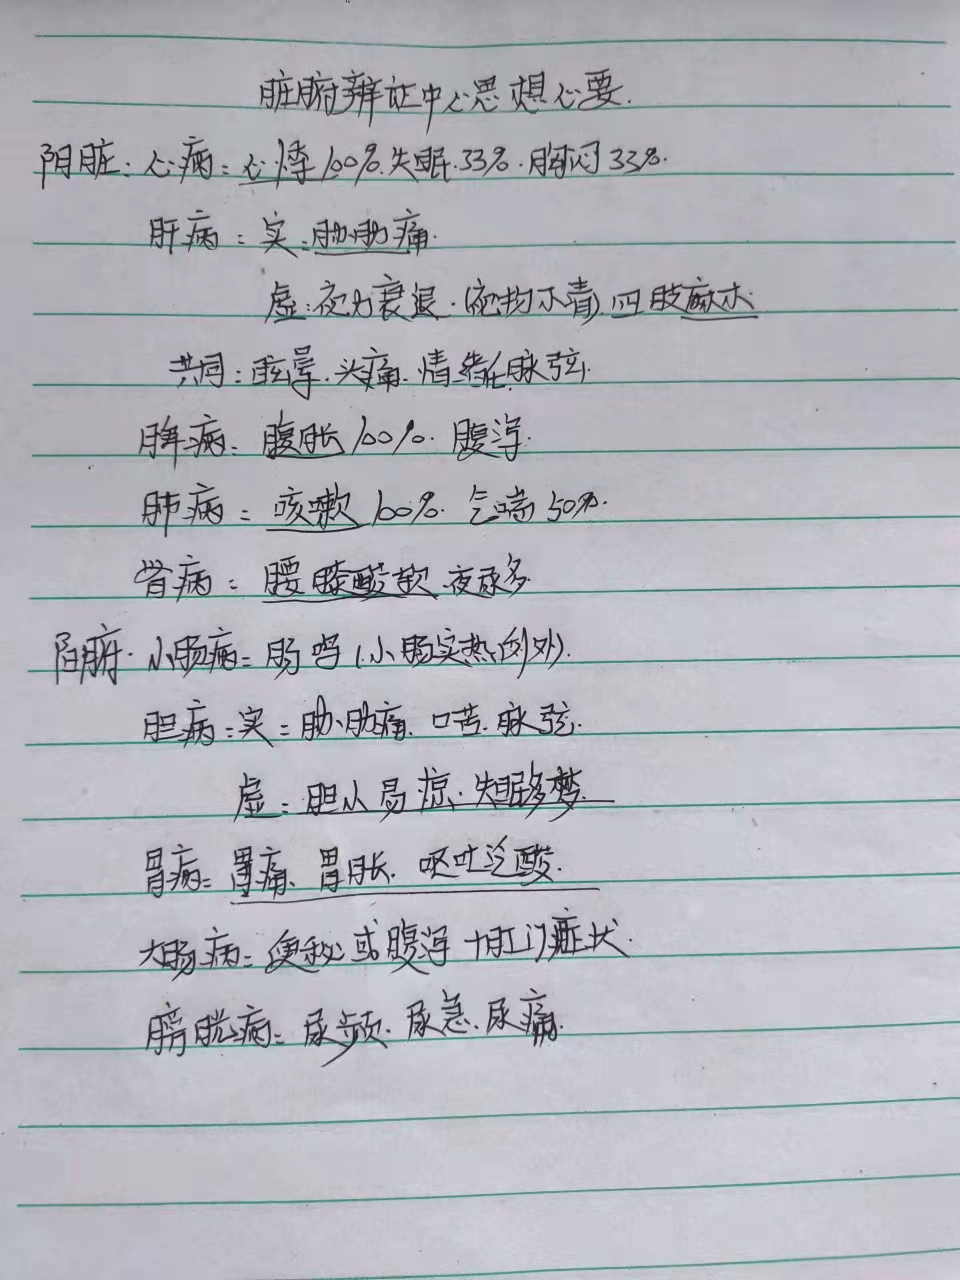 脏腑辨证中心思想心要.
阴脏: 心病: 心悸100%.失眠.33%.胸闷33%.
肝病: 实:胁肋痛.
虚:视力衰退.(视物不清).四肢麻木
共同:眩晕.头痛.情绪.脉弦.
脾病: 腹胀100%.腹泻.
肺病: 咳嗽100%.气喘50%.
肾病: 腰膝酸软.夜尿多.
阳腑.小肠病: 肠鸣(小肠实热例外).
胆病:实:胁肋痛.口苦.脉弦.
虚:胆小易惊.失眠多梦.
胃病: 胃痛、胃胀.呕吐泛酸.
大肠病: 便秘或腹泻+肛门症状.
膀胱病: 尿频.尿急.尿痛.